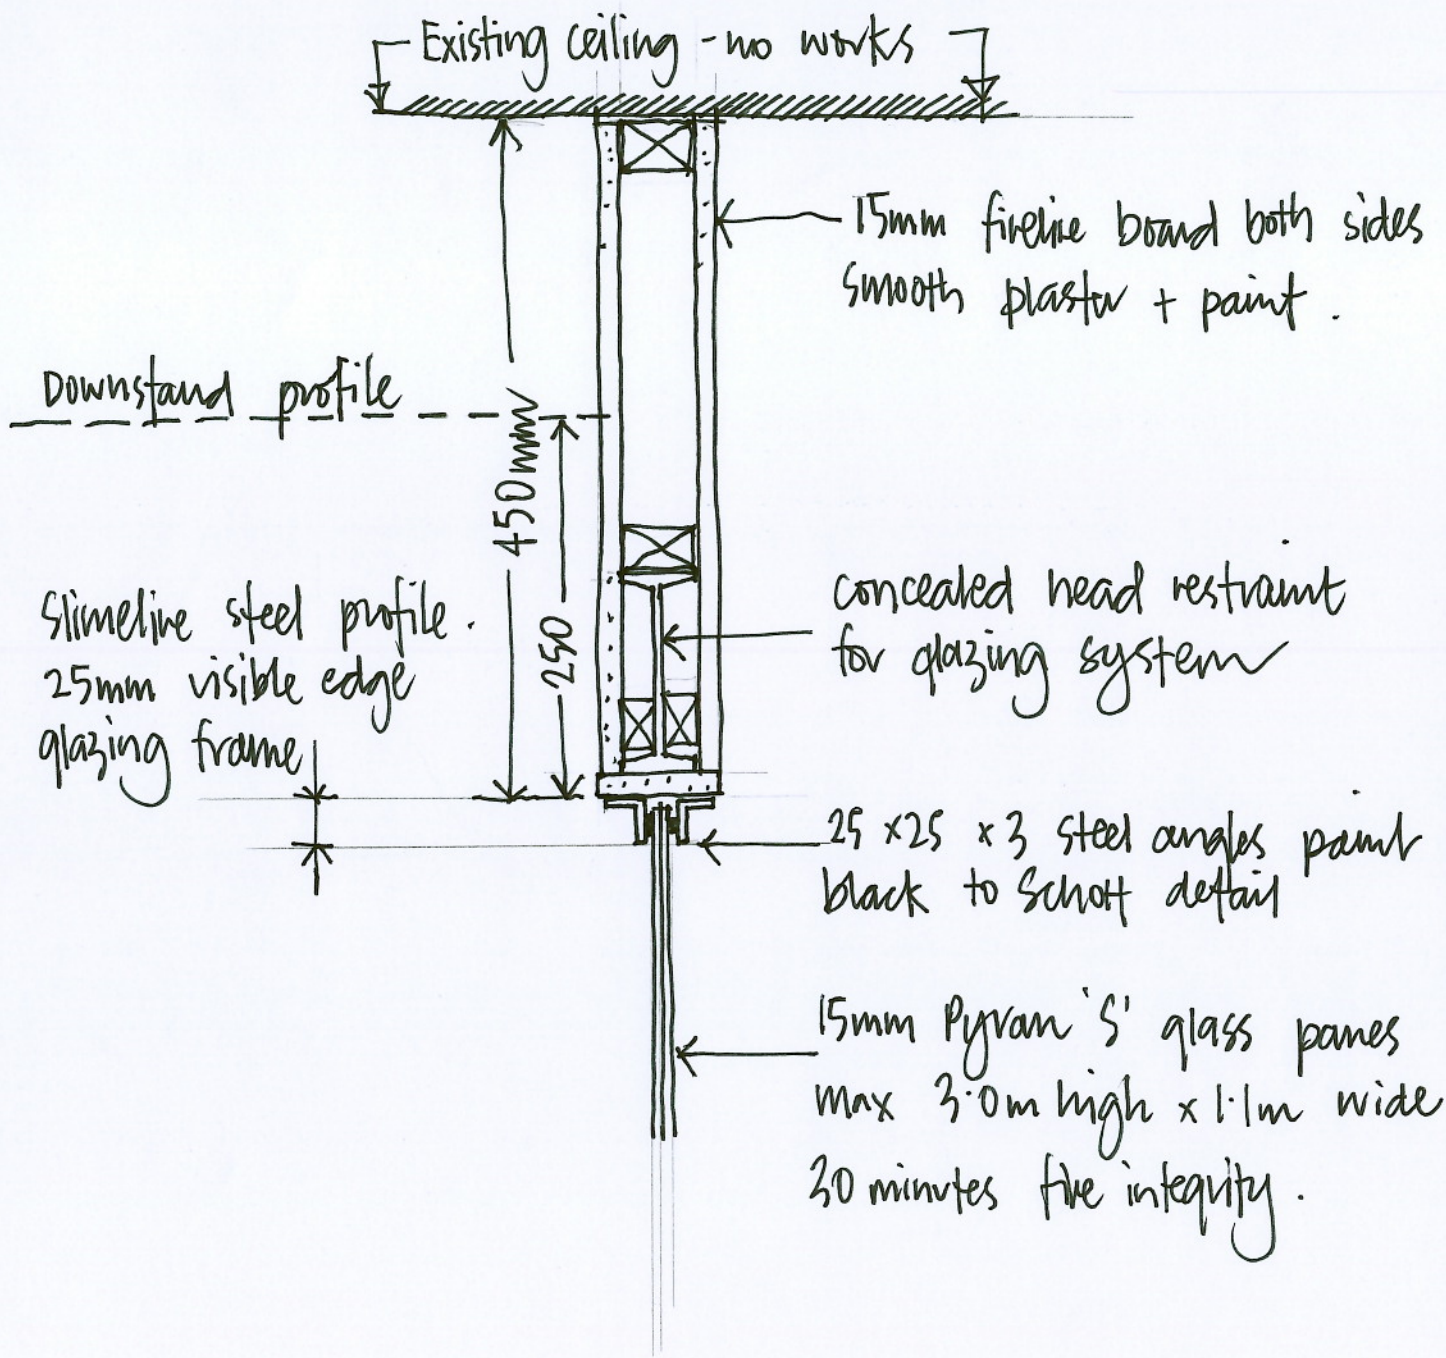 Existing ceiling - no works
15mm fireline board both sides
smooth plaster + paint .
Downstand profile
450mm
250
Slimeline steel profile .
25mm visible edge
glazing frame
concealed head restraint
for glazing system
25 x25 x 3 steel angles paint
black to Schott detail
15mm Pyran 'S' glass panes
max 3.0m high x 1.1m wide
30 minutes fire integrity .